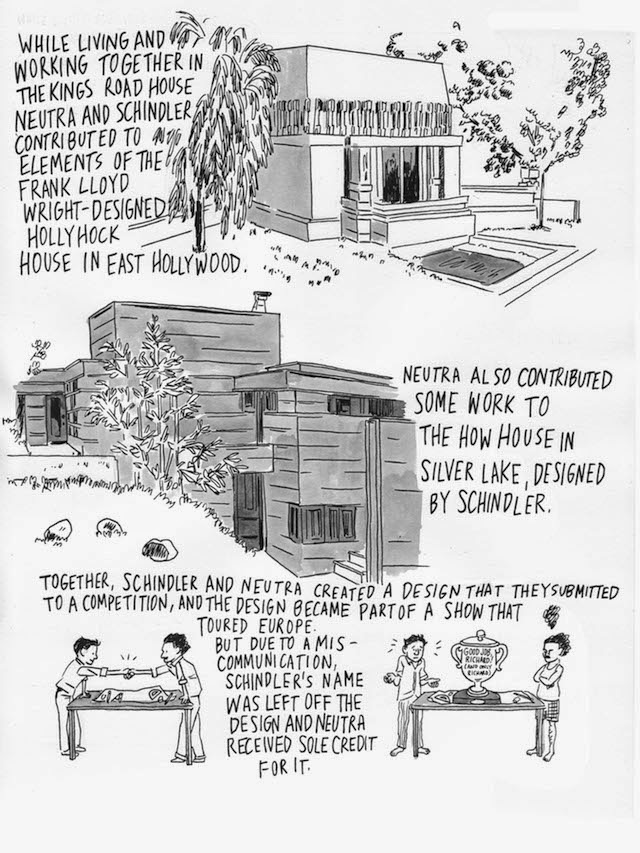 WHILE LIVING AND
WORKING TOGETHER IN
THE KINGS ROAD HOUSE
NEUTRA AND SCHINDLER
CONTRIBUTED TO
ELEMENTS OF THE
FRANK LLOYD
WRIGHT-DESIGNED
HOLLYHOCK
HOUSE IN EAST HOLLYWOOD.
NEUTRA ALSO CONTRIBUTED
SOME WORK TO
THE HOW HOUSE IN
SILVER LAKE, DESIGNED
BY SCHINDLER.
TOGETHER, SCHINDLER AND NEUTRA CREATED A DESIGN THAT THEY SUBMITTED
TO A COMPETITION, AND THE DESIGN BECAME PART OF A SHOW THAT
TOURED EUROPE.
BUT DUE TO A MIS-
COMMUNICATION,
SCHINDLER'S NAME
WAS LEFT OFF THE
DESIGN AND NEUTRA
RECEIVED SOLE CREDIT
FOR IT.
GOOD JOB,
RICHARD!
(AND ONLY
RICHARD)